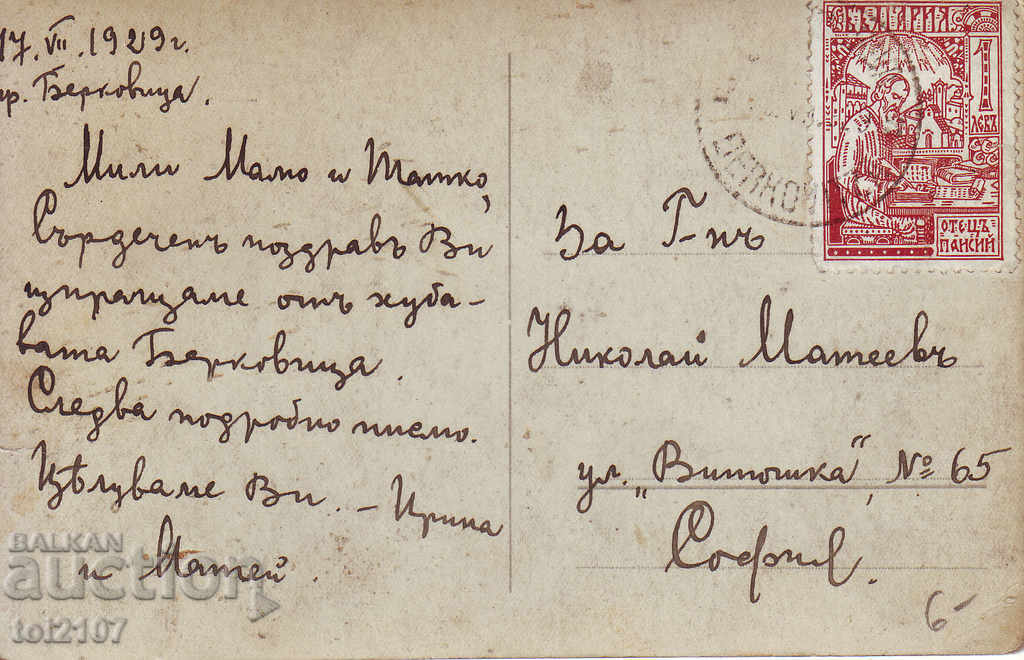 17. VII. 1929 г.
гр. Берковица.
Мили Мамо и Татко,
Сърдеченъ поздравъ Ви
изпращаме отъ хуба-
вата Берковица.
Следва подробно писмо.
Цѣлуваме Ви. – Ирина
и Матей.
БЪЛГАРИЯ
1
ЛЕВЪ
ОТЕЦЪ
ПАИСИЙ
BERKOVI
За Г-нъ
Николай Матеевъ
ул. „Витошка“, № 65
София.
6-
BALKAN
auction
tol2107